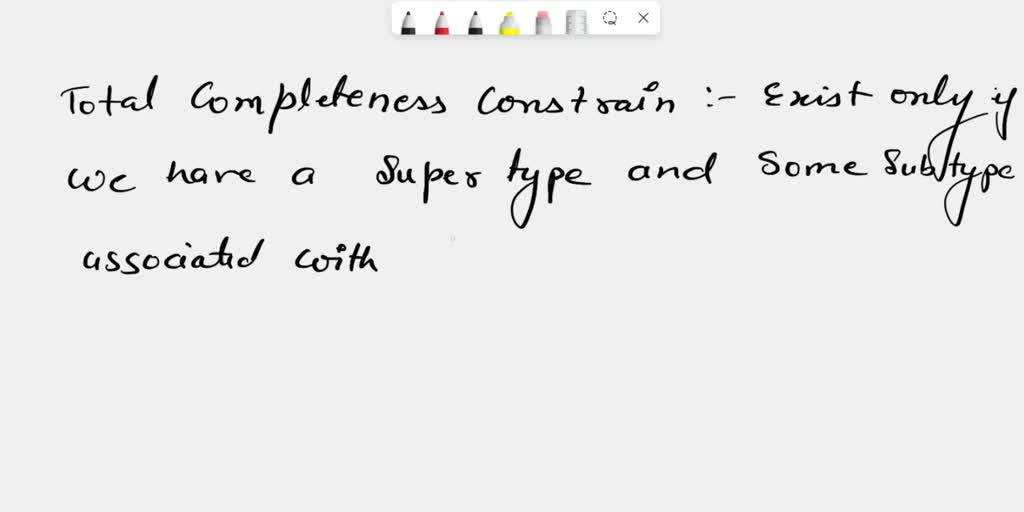 Total Completeness Constrain :- Exist only if
we have a Super type and Some Subtype
associated with